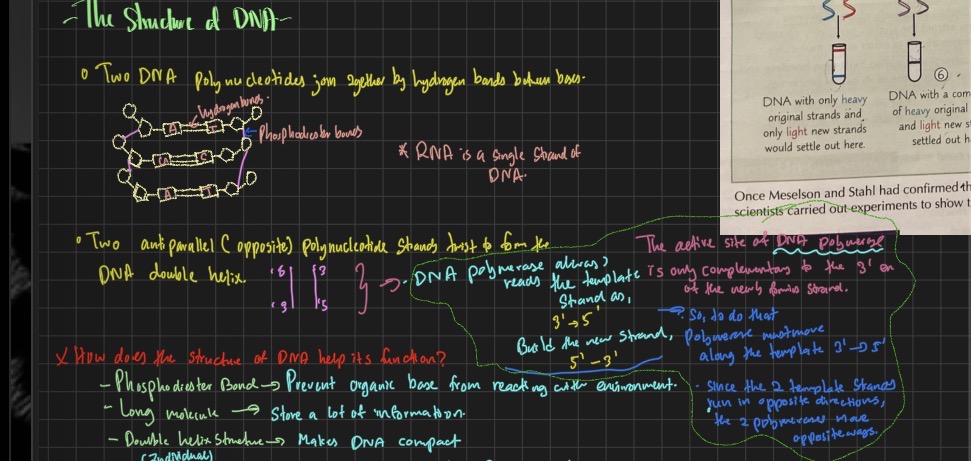 - The Structure of DNA -
Two DNA polynucleotides join together by hydrogen bonds between bases.
hydrogen bonds.
Phosphodiester bonds
A T
G C
A T
* RNA is a single strand of
DNA.
Two antiparallel (opposite) polynucleotide strands twist to form the
DNA double helix.
5' 3'
3' 5'
DNA polymerase always
reads the template
strand as,
3' → 5'
Build the new strand,
5' - 3'
The active site of DNA polymerase
is only complementary to the 3' en
of the newly forming strand.
So, to do that
Polymerase must move
along the template 3' → 5'
- Since the 2 template strands
run in opposite directions,
the 2 polymerases move
opposite ways.
X How does the structure of DNA help its function?
- Phosphodiester Bond → Prevent organic base from reacting with environment.
- Long molecule → Store a lot of information.
- Double helix structure → Makes DNA compact
(Individual)
6
DNA with only heavy
original strands and
only light new strands
would settle out here.
DNA with a com
of heavy original
and light new s
settled out h
Once Meselson and Stahl had confirmed th
scientists carried out experiments to show t